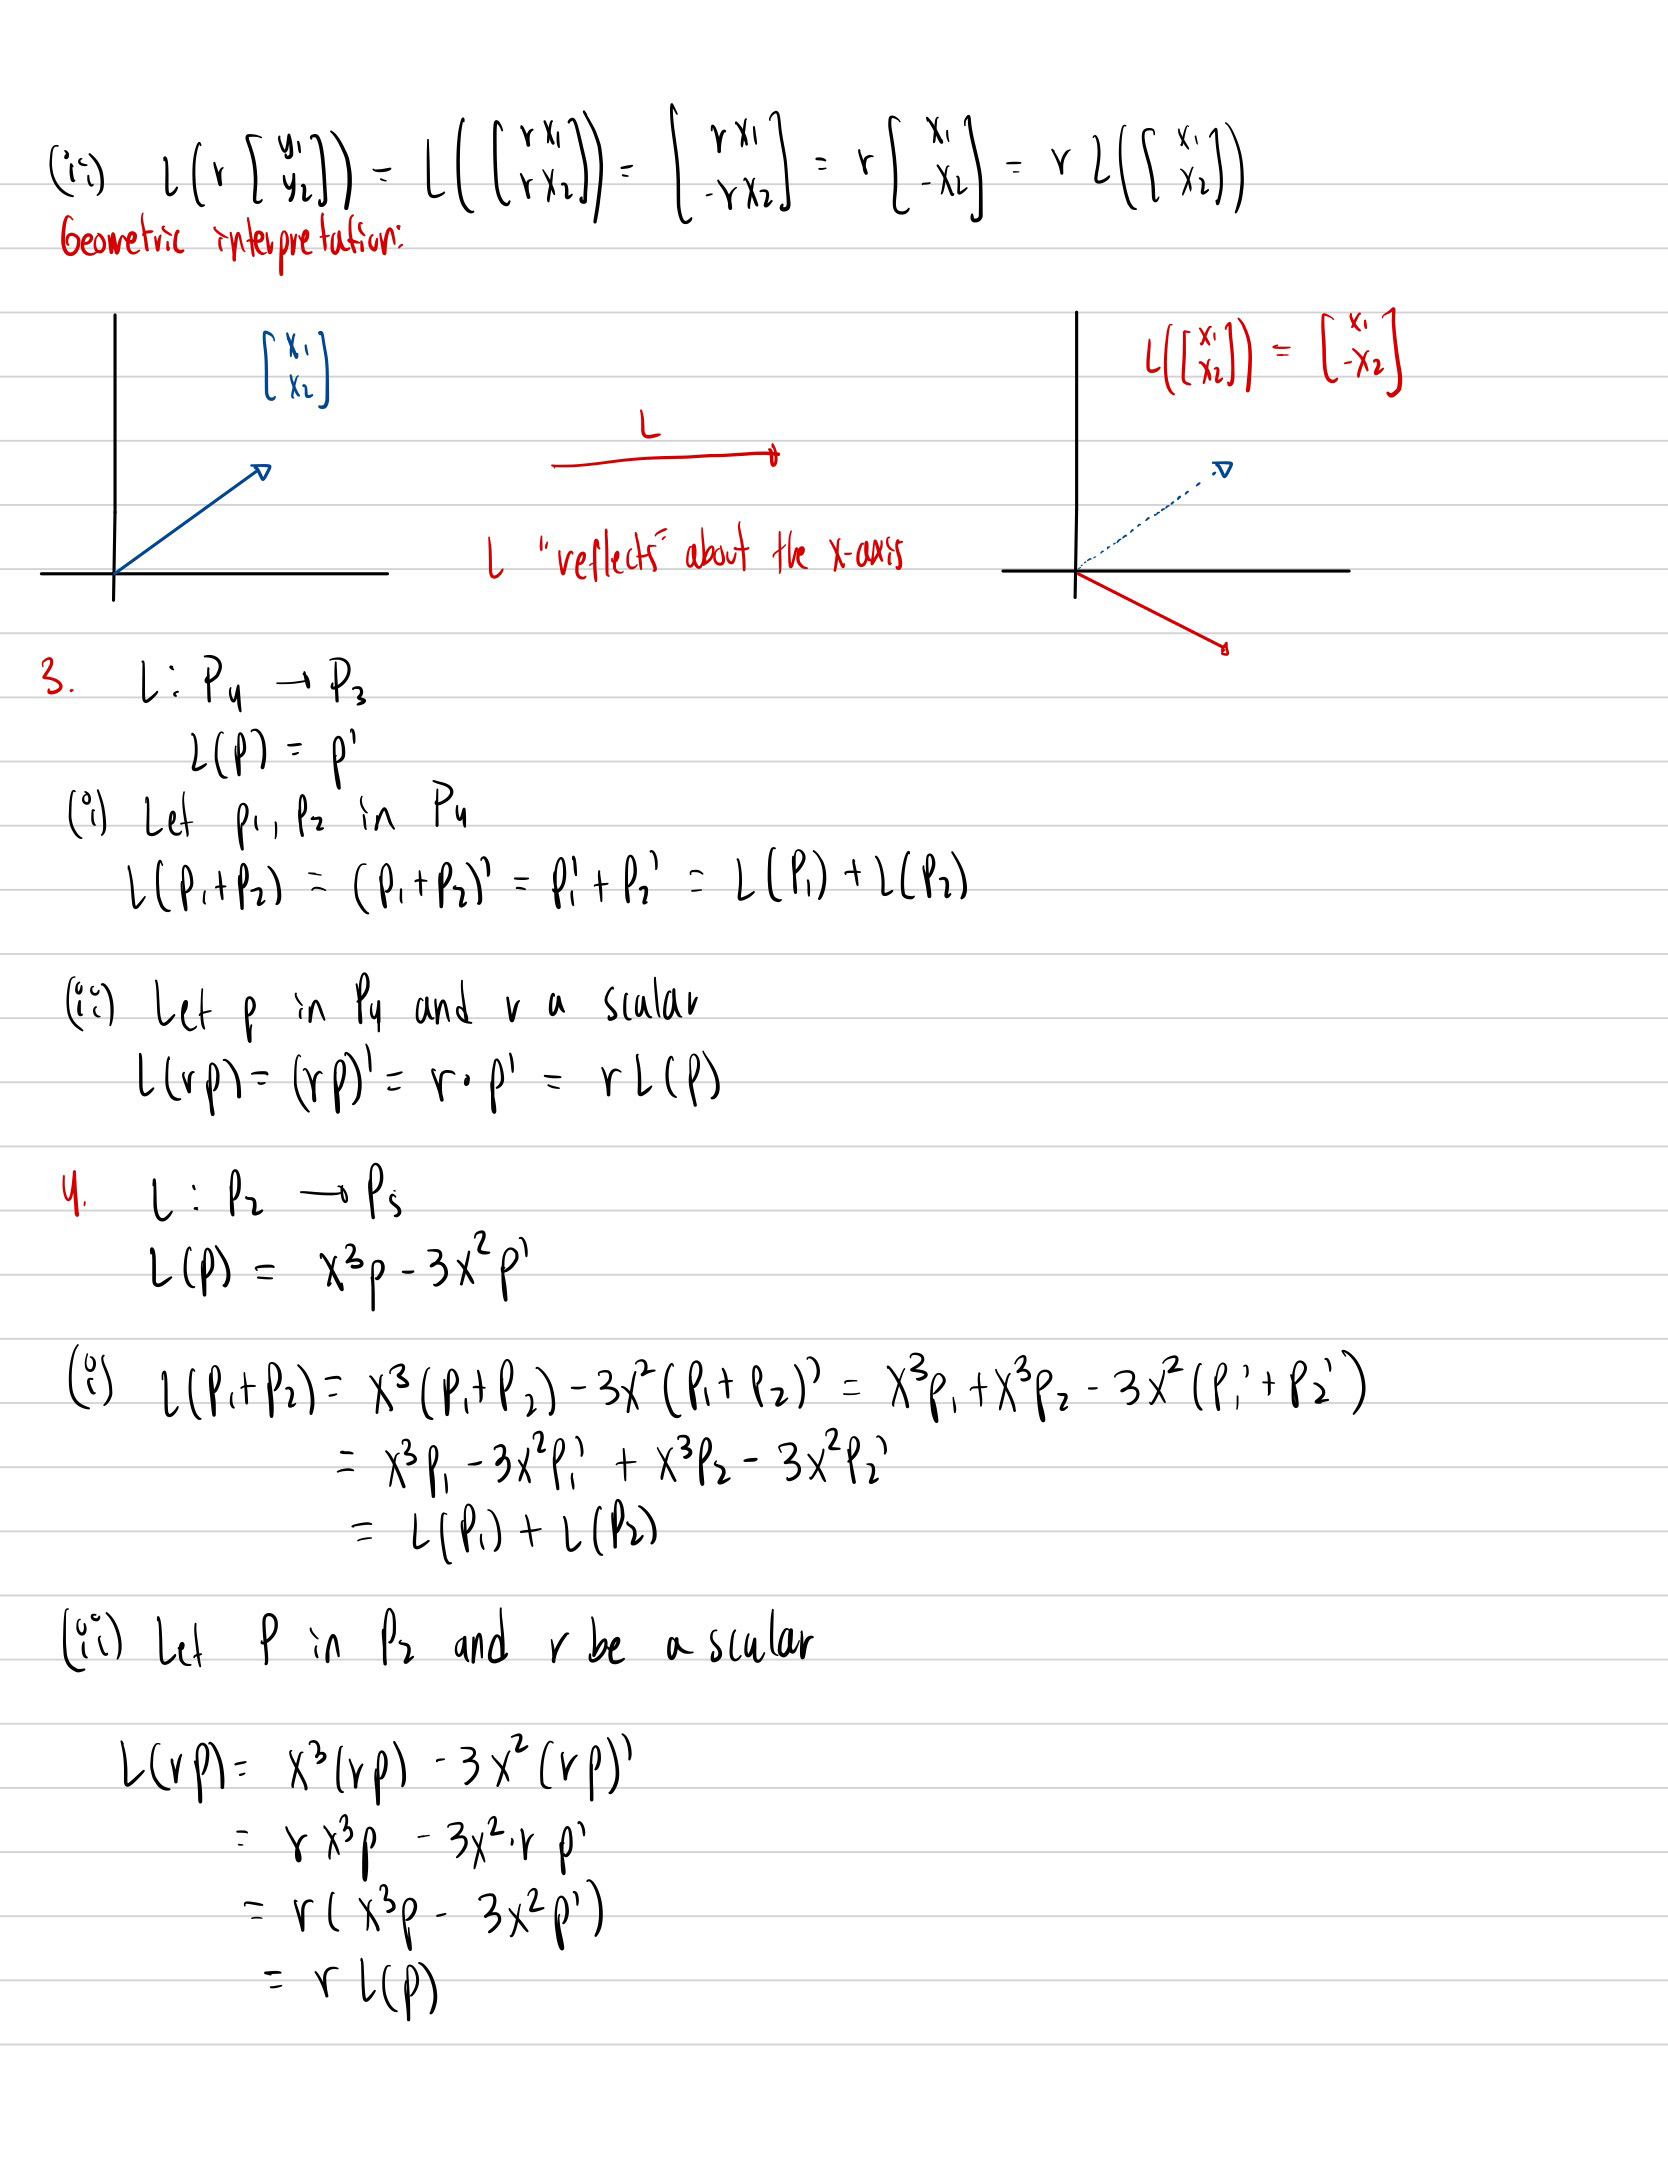 (ii) L(r [y₁ y₂]) = L([rx₁ rx₂]) = [rx₁ -rx₂] = r[x₁ -x₂] = r L([x₁ x₂])
Geometric interpretation:
[x₁ x₂]
L([x₁ x₂]) = [x₁ -x₂]
L
L "reflects" about the x-axis
3. L : P₄ → P₃
L(p) = p'
(i) Let p₁, p₂ in P₄
L(p₁+p₂) = (p₁+p₂)' = p₁' + p₂' = L(p₁) + L(p₂)
(ii) Let p in P₄ and r a scalar
L(rp) = (rp)' = r · p' = r L(p)
4. L : P₂ → P₅
L(p) = x³p - 3x²p'
(i) L(p₁+p₂) = x³(p₁+p₂) - 3x²(p₁+p₂)' = x³p₁ + x³p₂ - 3x²(p₁' + p₂')
= x³p₁ - 3x²p₁' + x³p₂ - 3x²p₂'
= L(p₁) + L(p₂)
(ii) Let p in P₂ and r be a scalar
L(rp) = x³(rp) - 3x²(rp)'
= rx³p - 3x²·r p'
= r( x³p - 3x²p')
= r L(p)